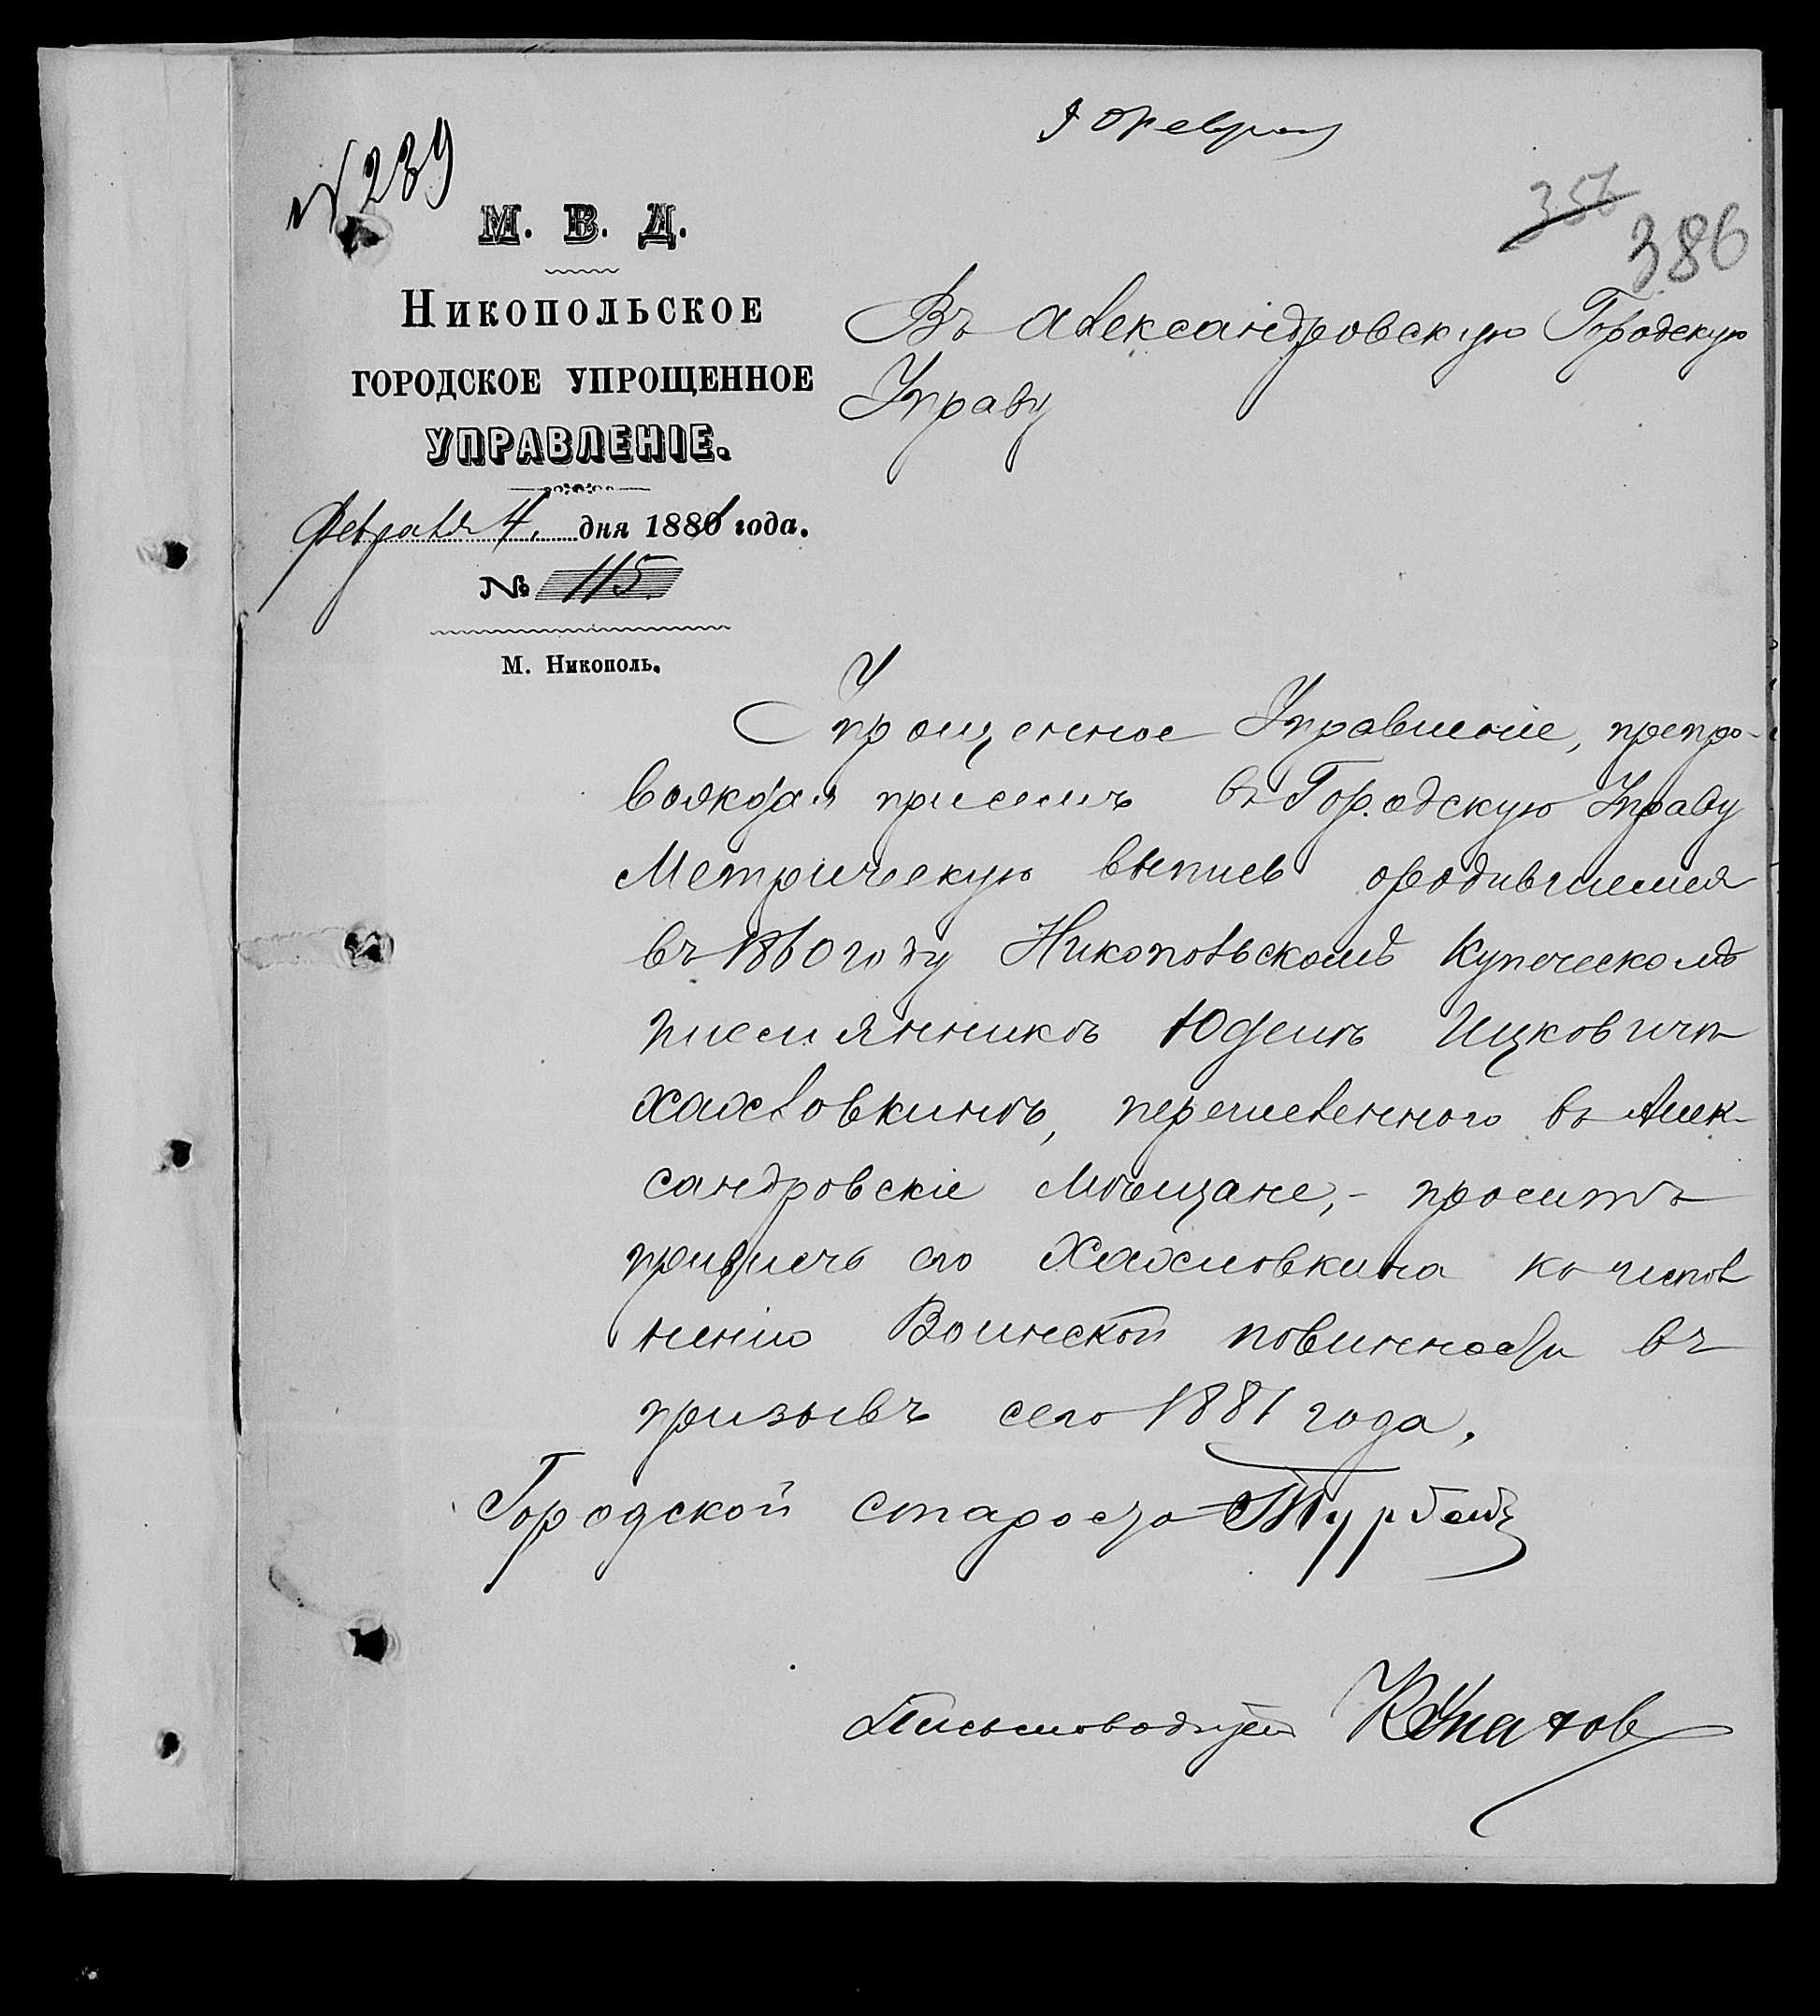 9 февраля
№ 239
356
386
М. В. Д.
Никопольское
городское упрощенное
управленіе.
Февраля 4. дня 1881 года.
№ 115.
М. Никополь.
Въ Александровскую Городскую
Управу
Упрощенное Управленіе, препро-
вождая присемъ въ Городскую Управу
Метрическую выпись ородившемся
въ 1860 году Никопольскомъ Купеческомъ
племянникѣ Юделѣ Ицковичѣ
Хахловкинѣ, перешедшаго въ Алек-
сандровскіе Мѣщане, - проситъ
привлечь его Хахловкина къ испол
ненію Воинской повинности въ
призывъ сего 1881 года.
Городской староста
Письмоводитель